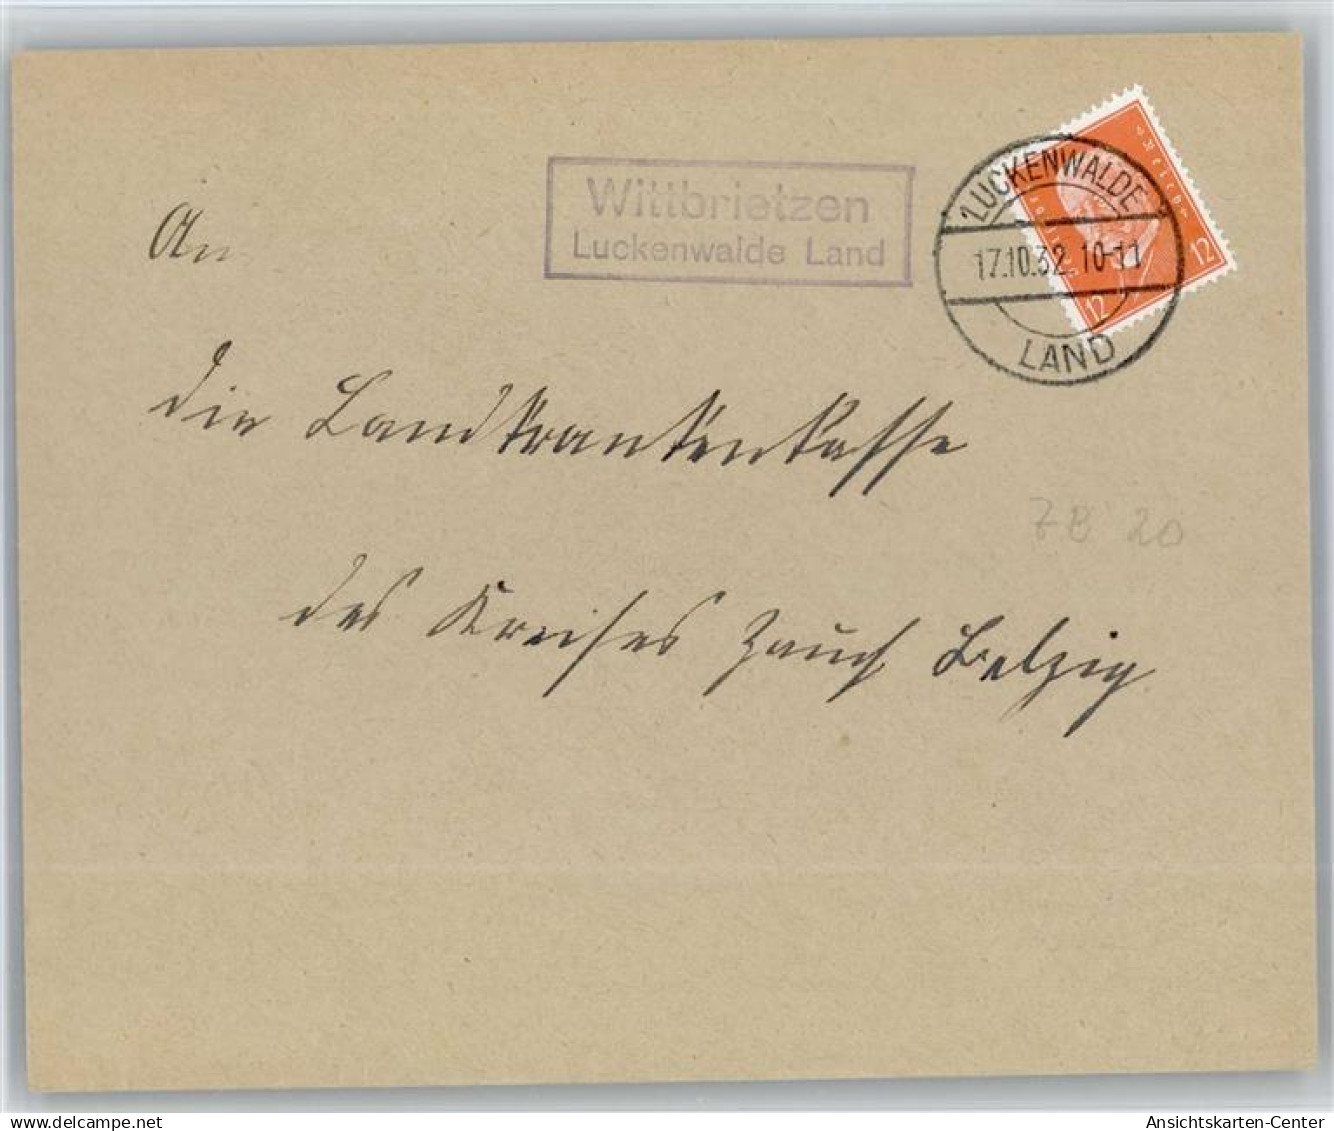 Wittbrietzen
Luckenwalde Land
LUCKENWALDE
17.10.32. 10-11
LAND
12
12
An
die Landkrankenkasse
des Kreises Zauch Belzig
20
www.delcampe.net
Ansichtskarten-Center